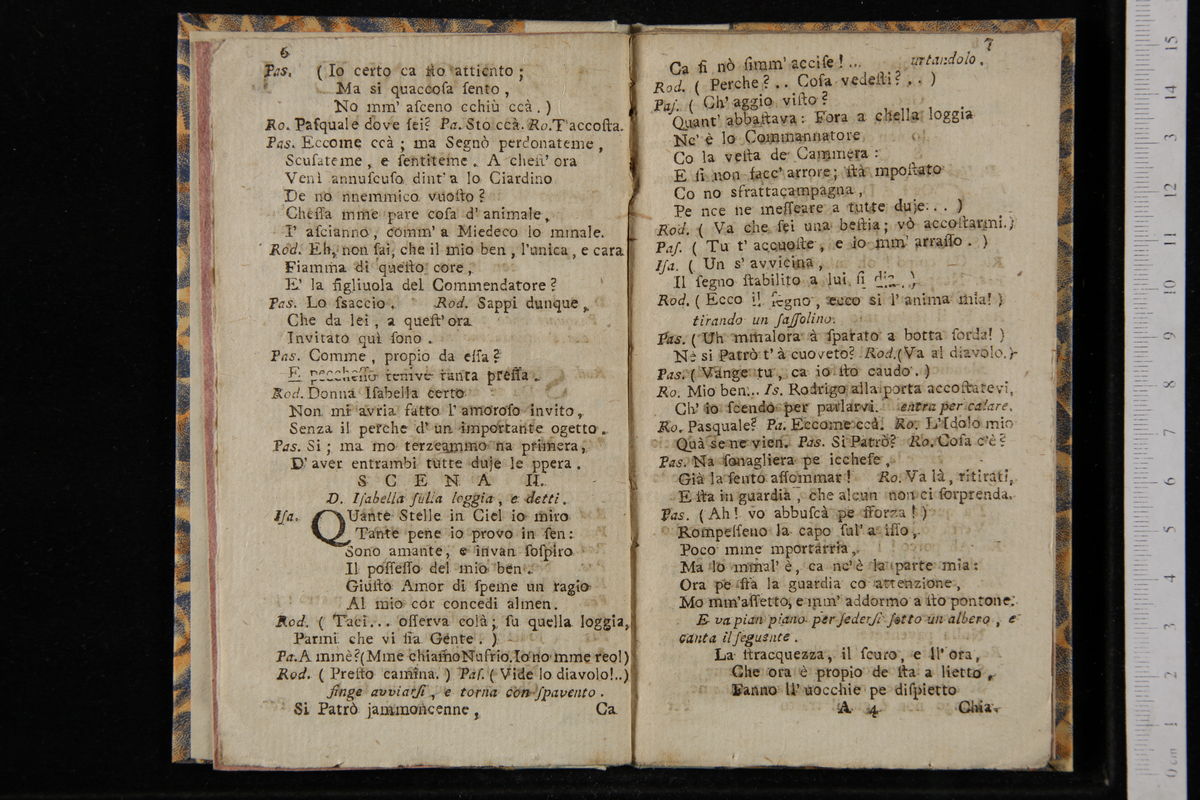 6
Pas. (Io certo ca ſto attiento;
Ma si quaccoſa ſento,
No mm' aſceno cchiù ccà.)
Ro. Paſquale dove ſei? Pa. Sto ccà. Ro. T'accoſta.
Pas. Eccome ccà; ma Segnò perdonateme,
Scuſateme, e ſentiteme. A cheſt' ora
Venì annuſcuſo dint' a lo Ciardino
De no nnemmico vuoſto?
Cheſſa mme pare coſa d' animale,
I' aſcianno, comm' a Miedeco lo mmale.
Rod. Eh, non ſai, che il mio ben, l'unica, e cara
Fiamma di queſto core,
E' la figliuola del Commendatore?
Pas. Lo ſsaccio. Rod. Sappi dunque,
Che da lei, a queſt' ora
Invitato quì ſono.
Pas. Comme, propio da eſſa?
E peccheſſo tenive tanta preſſa.
Rod. Donna Iſabella certo
Non mi avria fatto l' amoroſo invito,
Senza il perche d' un importante ogetto.
Pas. Si; ma mo terzeammo na primera,
D' aver entrambi tutte duje le ppera.
SCENA II.
D. Iſabella ſulla loggia, e detti.
Iſa. QUante Stelle in Ciel io miro
Tante pene io provo in ſen:
Sono amante, e invan ſoſpiro
Il poſſeſſo del mio ben.
Giuſto Amor di ſpeme un ragio
Al mio cor concedi almen.
Rod. (Taci... oſſerva colà; ſu quella loggia,
Parmi che vi ſia Gente.)
Pa. A mmè? (Mme chiamo Nufrio. Io no mme reo!)
Rod. (Preſto camina.) Paſ. (Vide lo diavolo!..)
finge avviarſi, e torna con ſpavento.
Si Patrò jammoncenne,
Ca
7
Ca ſi nò ſimm' acciſe!... urtandolo.
Rod. (Perche?.. Coſa vedeſti?..)
Paſ. (Ch' aggio viſto?
Quant' abbaſtava: Fora a chella loggia
Nc' è lo Commannatore
Co la veſta de Cammera:
E ſi non facc' arrore; ſtà mpoſtato
Co no sfrattacampagna,
Pe nce ne meſſeare a tutte duje...)
Rod. (Va che ſei una beſtia; vò accoſtarmi.)
Paſ. (Tu t' accuoſte, e io mm' arraſſo.)
Iſa. (Un s' avvicina,
Il ſegno ſtabilito a lui ſi dia.)
Rod. (Ecco il ſegno, ecco si l' anima mia!)
tirando un ſaſſolino.
Pas. (Uh mmalora à ſparato a botta ſorda!)
Nè si Patrò t' à cuoveto? Rod. (Va al diavolo.)
Pas. (Vànge tu, ca io ſto caudo.)
Ro. Mio ben... Is. Rodrigo alla porta accoſtatevi,
Ch' io ſcendo per parlarvi. entra per calare.
Ro. Pasquale? Pa. Eccome ccà. Ro. L'Idolo mio
Quà se ne vien. Pas. Si Patrò? Ro. Coſa c'è?
Pas. Na ſonagliera pe icchefe,
Già la ſento aſſommar! Ro. Va là, ritirati,
E ſta in guardia, che alcun non ci ſorprenda.
Pas. (Ah! vo abbuſcà pe fforza!)
Rompeſſeno la capo ſul' a iſſo,
Poco mme mportarria,
Ma lo mmal' è, ca nc'è la parte mia:
Ora pe ſtà la guardia co attenzione,
Mo mm'aſſetto, e mm' addormo a ſto pontone.
E va pian piano per ſederſi ſotto un albero, e
canta il ſeguente.
La ſtracquezza, il ſcuro, e ll' ora,
Che ora è propio de ſta a lietto,
Fanno ll' uocchie pe diſpietto
A 4 Chia-
15
14
13
12
11
10
9
8
7
6
5
4
3
2
1
0 cm